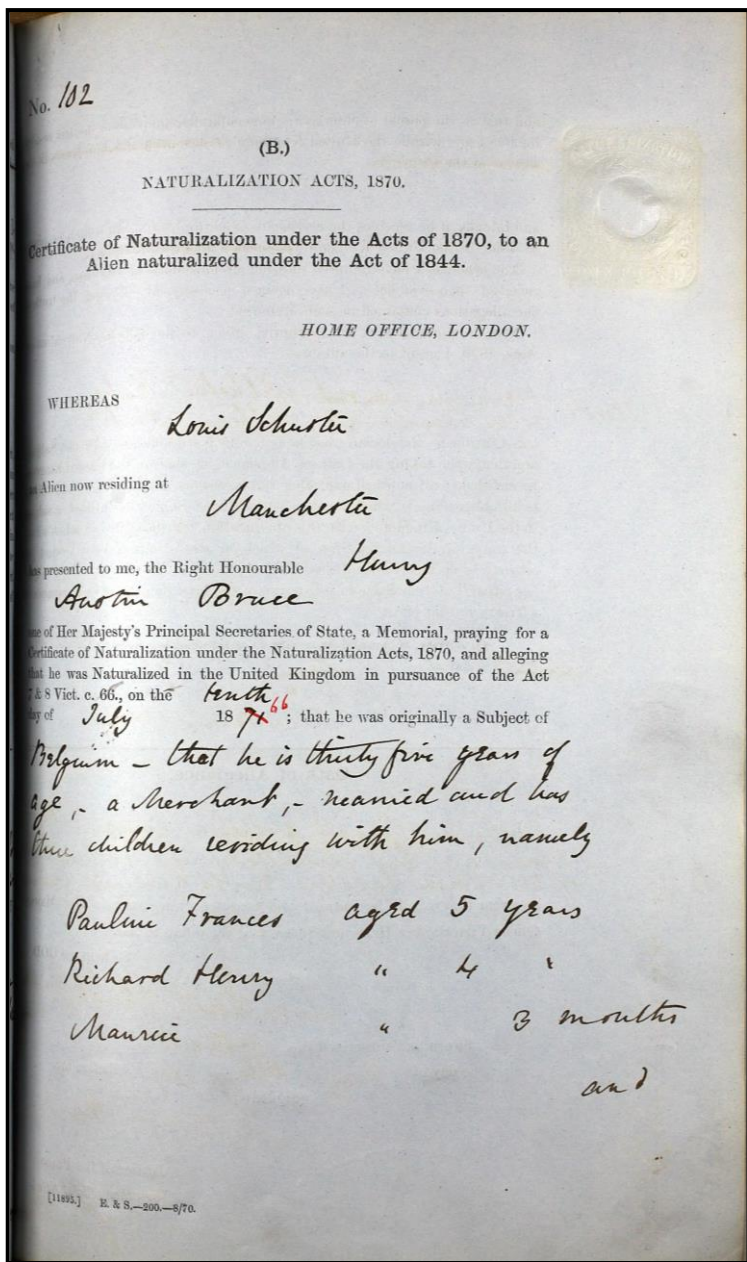 No. 102
(B.)
NATURALIZATION ACTS, 1870.
Certificate of Naturalization under the Acts of 1870, to an
Alien naturalized under the Act of 1844.
HOME OFFICE, LONDON.
WHEREAS
Louis Schuster
an Alien now residing at
Manchester
has presented to me, the Right Honourable Henry
Austin Bruce
one of Her Majesty's Principal Secretaries of State, a Memorial, praying for a
Certificate of Naturalization under the Naturalization Acts, 1870, and alleging
that he was Naturalized in the United Kingdom in pursuance of the Act
7 & 8 Vict. c. 66., on the tenth
day of July 18 71 66 ; that he was originally a Subject of
Belgium – that he is thirty five years of
age, – a Merchant, – married and has
three children residing with him, namely
Pauline Frances aged 5 years
Richard Henry " 4 "
Maurice " 3 months
and
[11895.] E. & S.—200.—8/70.